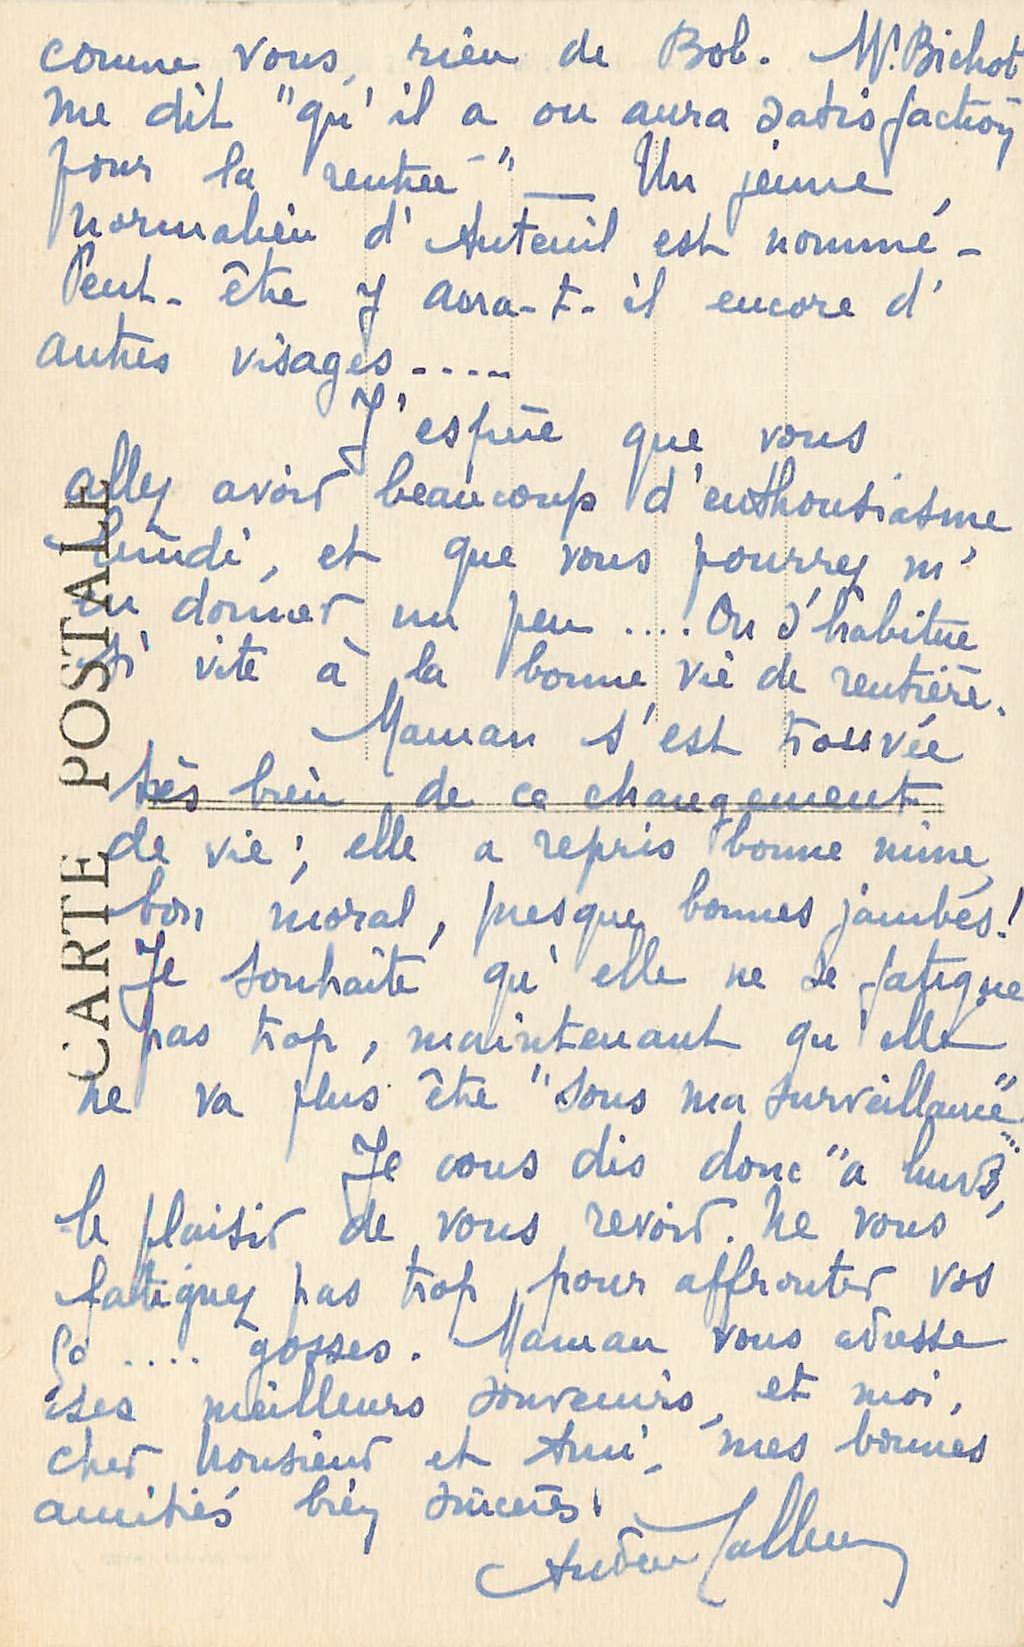 comme vous, rien de Bob. Mr. Bichot
me dit "qu'il a ou aura satisfaction
pour la rentrée" — Un jeune
normalien d'Auteuil est nommé -
Peut-être y aura-t-il encore d'
autres visages.....
J'espère que vous
allez avoir beaucoup d'enthousiasme
lundi, et que vous pourrez m'
en donner un peu .... On s'habitue
si vite à la bonne vie de rentière.
Maman s'est trouvée
très bien de ce changement
de vie ; elle a repris bonne mine,
bon moral, presque bonnes jambes!
Je souhaite qu'elle ne se fatigue
pas trop, maintenant qu'elle
ne va plus être "sous ma surveillance"...
Je vous dis donc "à lundi",
le plaisir de vous revoir. Ne vous
fatiguez pas trop, pour affronter vos
50 .... gosses. Maman vous adresse
ses meilleurs souvenirs, et moi,
cher Monsieur et Ami, mes bonnes
amitiés bien sincères.
CARTE POSTALE